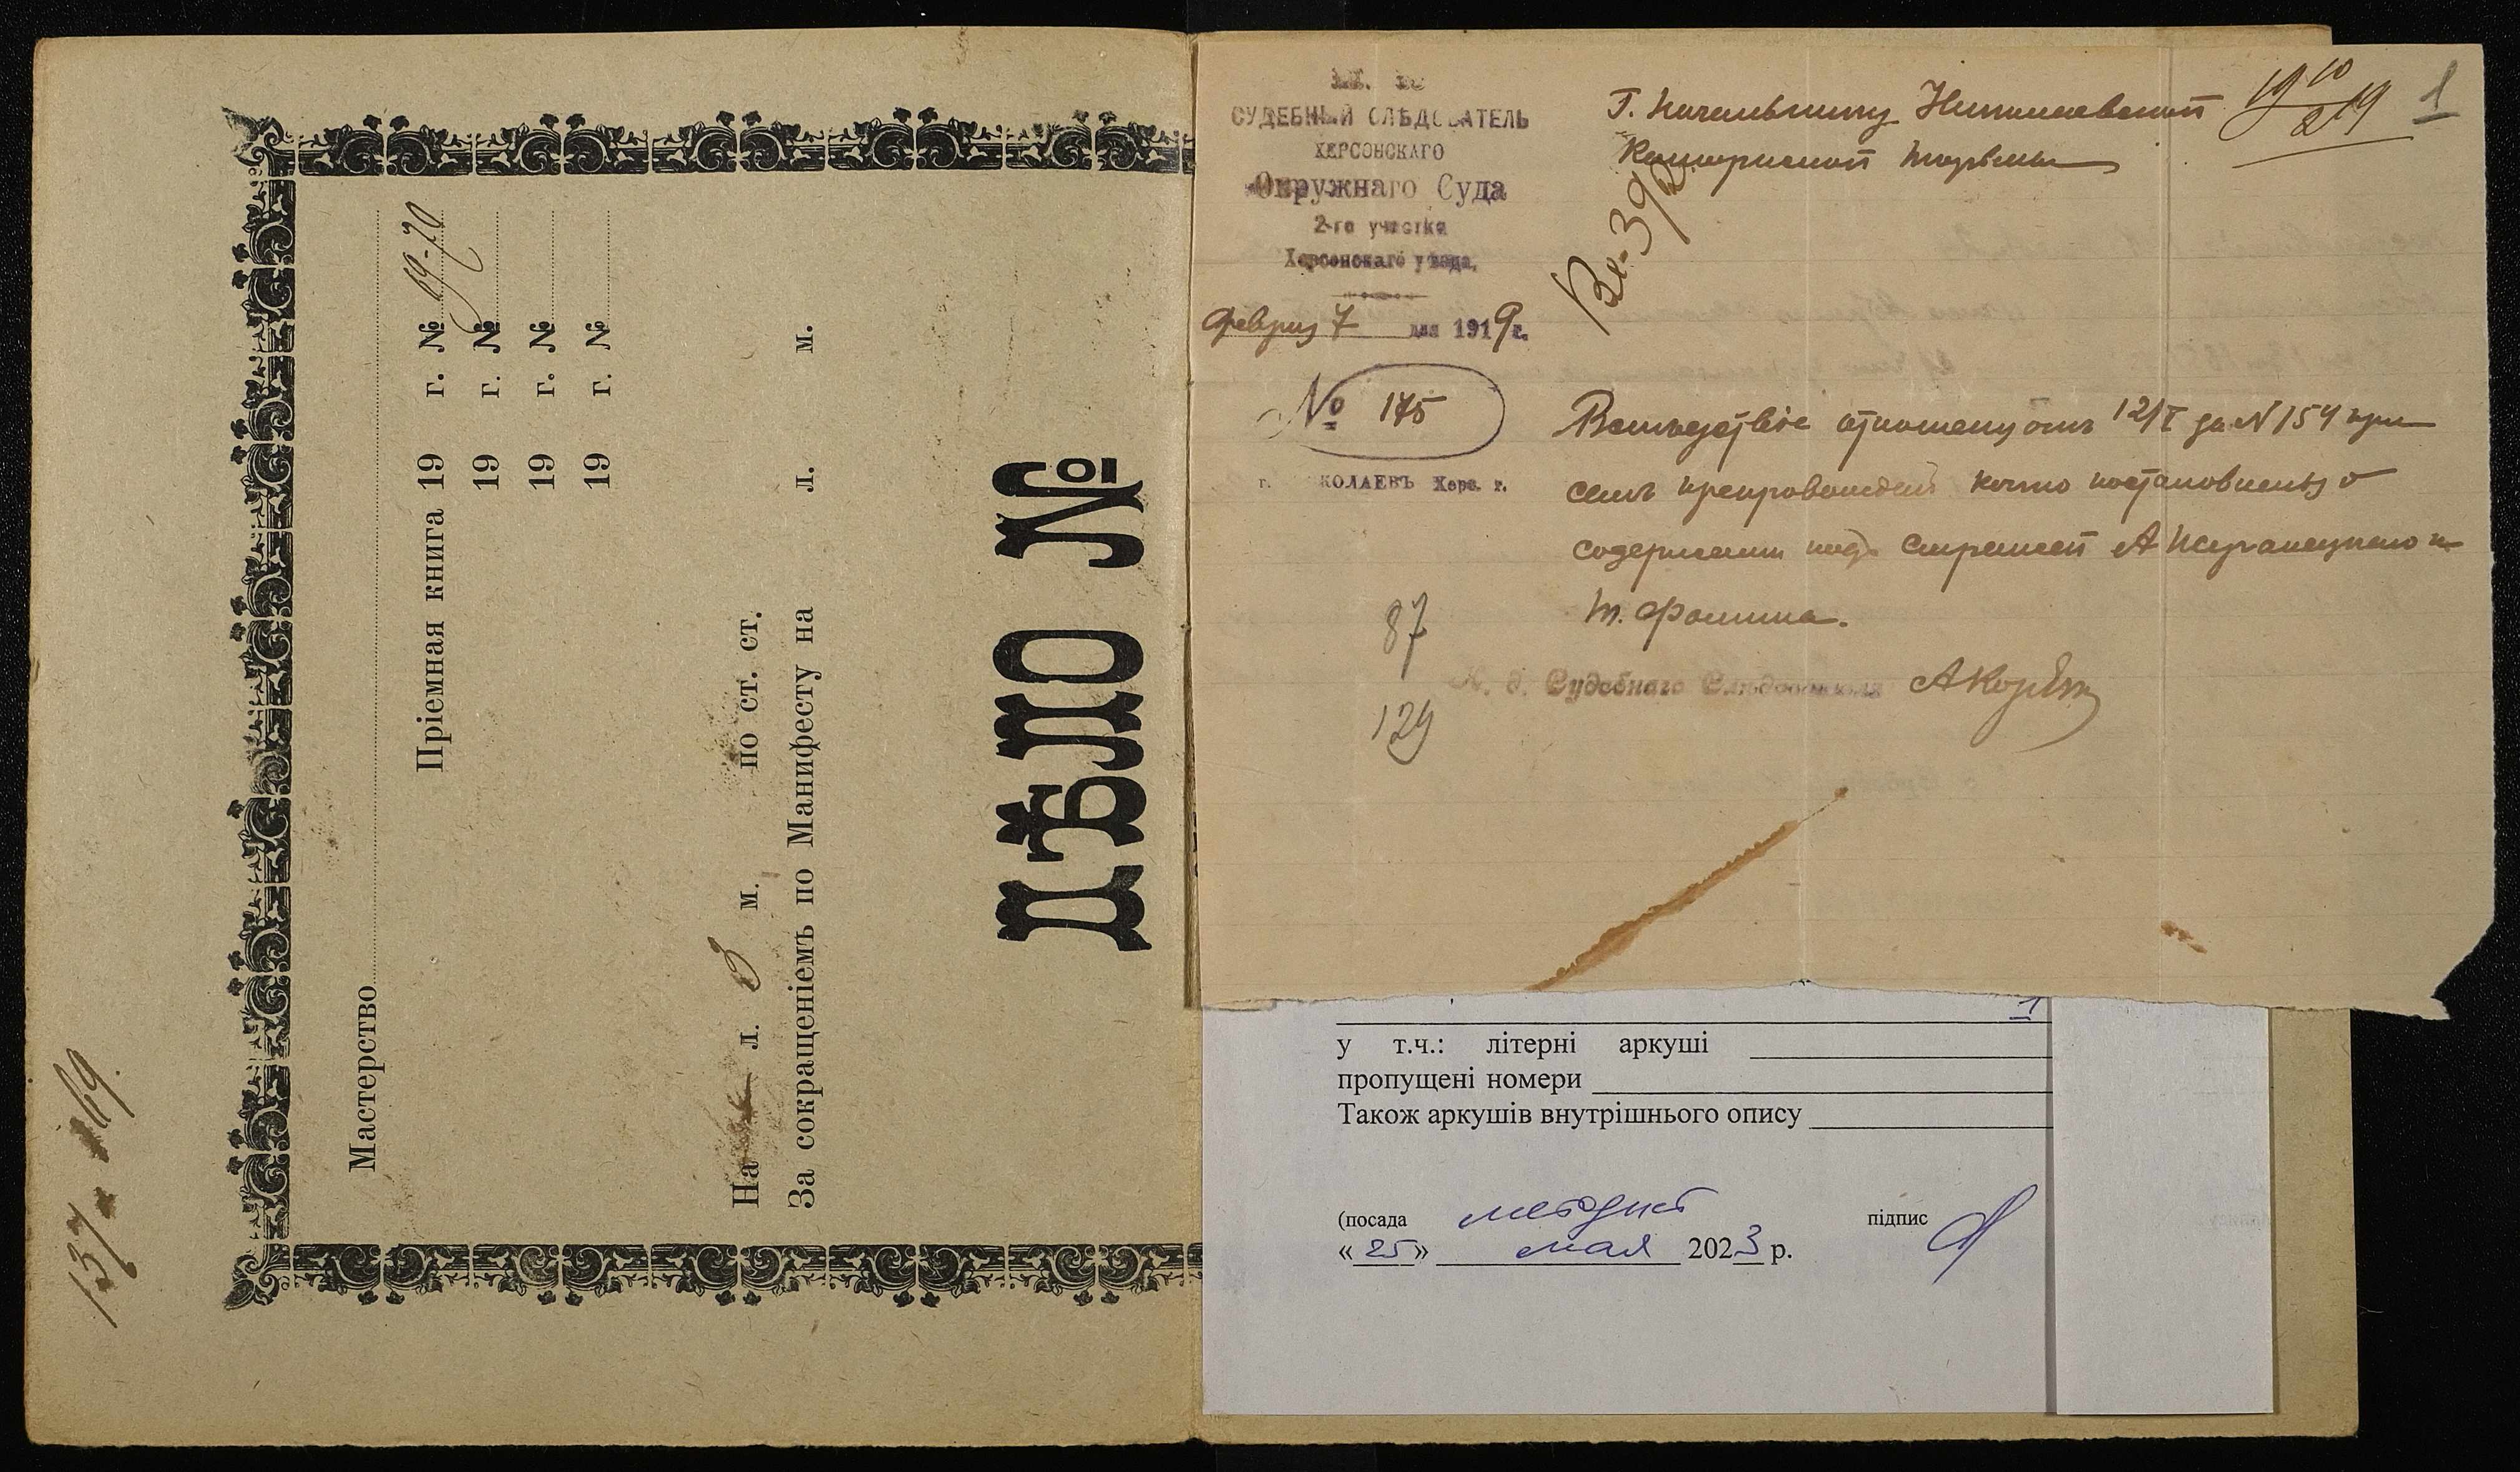 137. 169.
Мастерство
Пріемная книга 19 г. № 69-70
19 г. №
19 г. №
19 г. №
На л. 3 м. по ст. ст.
За сокращеніемъ по Манифесту на л. м.
ДѢЛО №
СУДЕБНЫЙ СЛѢДОВАТЕЛЬ
ХЕРСОНСКАГО
Окружнаго Суда
2-го участка
Херсонскаго уѣзда,
Февраля 7 дня 1919 г.
№ 175
г. КОЛАЕВЪ Херс. г.
87
129
Г. Начальнику Николаевской
Каторжной тюрьмы
19 10/2 19
1
Вх-39
Вследствіе отношенія отъ 12/I за N 154 при
семъ препровождаю копію постановленія о
содержаніи подъ стражей А
Т. Фомина.
И. д. Судебнаго Слѣдователя
1
у т.ч.: літерні аркуші
пропущені номери
Також аркушів внутрішнього опису
(посада методист підпис
« 25 » мая 2023 р.